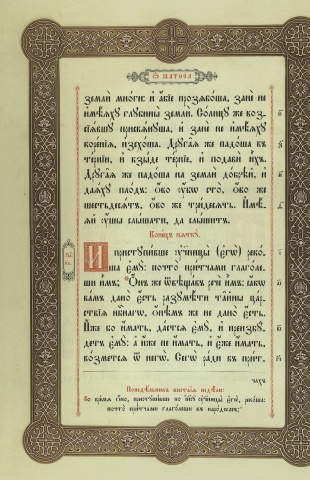 Ѿ матѳеа
землѝ мно́ги: и҆ а҆́бїе прозѧбо́ша, занѐ не
и҆мѣ́ѧхꙋ глꙋбины̀ землѝ. Со́лнцꙋ же воз-
сїѧ́вшꙋ присвѧ́нꙋша, и҆ занѐ не и҆мѣ́ѧхꙋ
коре́нїѧ, и҆зсхо́ша. Дрꙋга̑ѧ же падо́ша въ
те́рнїи, и҆ взы́де те́рнїе, и҆ подавѝ и҆̀хъ.
Дрꙋга̑ѧ же падо́ша на землѝ до́брѣй, и҆
даѧ́хꙋ пло́дъ: ѻ҆́во ᲂу҆́бѡ сто̀, ѻ҆́во же
шестьдесѧ́тъ, ѻ҆́во же три́десѧть. И҆мѣ́-
ѧй ᲂу҆́шы слы́шати, да слы́шитъ.
Коне́цъ пѧткꙋ̀.
И҆ пристꙋпи́вше ᲂу҆чн҃цы̀ (є҆гѡ̀) реко́-
ша є҆мꙋ̀: почто̀ при́тчами глаго́ле-
ши и҆̀мъ; Ѻ҆́нъ же ѿвѣща́въ речѐ и҆̀мъ: ꙗ҆́кѡ
ва́мъ дано̀ є҆́сть разꙋмѣ́ти та̑йны ца́р-
ствїѧ нбⷭ҇нагѡ, ѻ҆нѣ̑мъ же не дано̀ є҆́сть.
И҆́же бо и҆́мать, да́стсѧ є҆мꙋ̀, и҆ преизбꙋ́-
детъ є҆мꙋ̀: а҆ и҆́же не и҆́мать, и҆ є҆́же и҆́мать,
во́зметсѧ ѿ негѡ̀. Сегѡ̀ ра́ди въ при́т-
чахъ
во вре́мѧ ѻ҆́но, пристꙋпи́ша ко і҆и҃сꙋ ᲂу҆чн҃цы̀ є҆гѡ̀, реко́ша:
почто̀ при́тчами глаго́леши къ наро́дѡмъ;